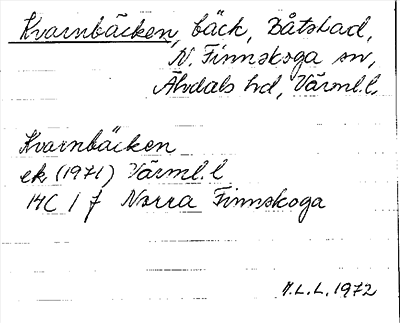 Kvarnbäcken, bäck, Båtstad,
N. Finnskoga sn,
Älvdals hd, Värml.l.
Kvarnbäcken
ek (1971) Värml.l
14C 1 f Norra Finnskoga
M.L.L. 1972